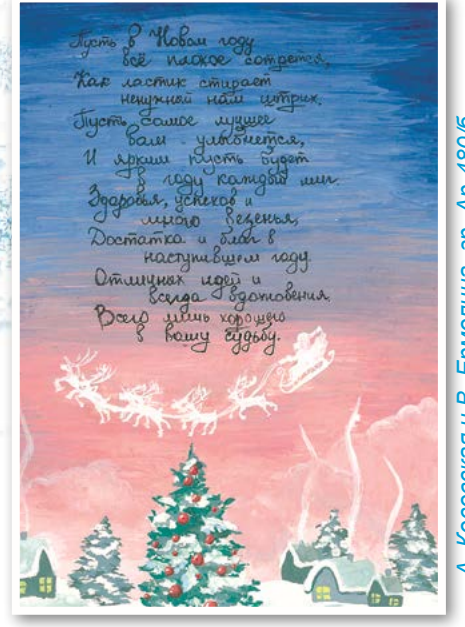 Пусть в Новом году
всё плохое сотрется,
Как ластик стирает
ненужный нам штрих.
Пусть самое лучшее
вам улыбнется,
И ярким пусть будет
в году каждый миг.
Здоровья, успехов и
много везенья,
Достатка и благ в
наступившем году.
Отличных идей и
всегда вдохновения.
Всего лишь хорошего
в вашу судьбу.
В. Ермолина, гр. Ар 480/5